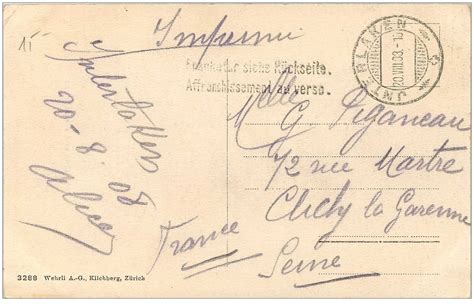 15
Imprimé
INTERLAKEN
20.VIII.08.-10
Frankatur siehe Rückseite.
Affranchissement au verso.
Melle
G Piganeau
72 rue Martre
Clichy la Garenne
Seine
France
Interlaken
20-8 08
3288 Wehrli A.-G., Kilchberg, Zürich